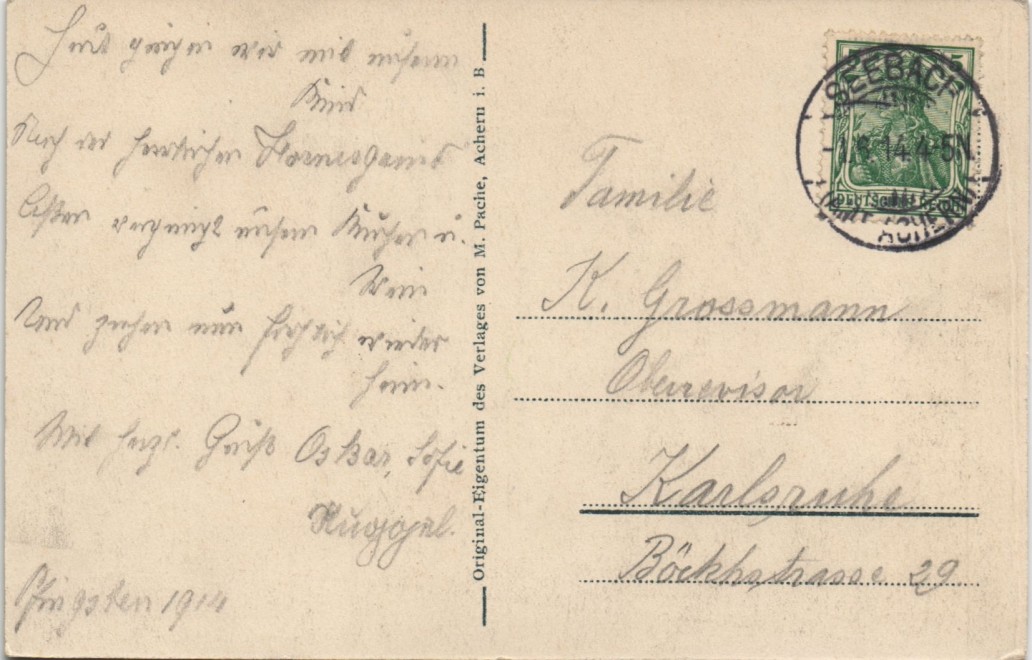 Heut gingen wir mit unserm
Kind
Nach der herrlichen Hornisgrind
Aßen vergnügt unsern Kuchen u.
Wein
Und ziehen nun fröhlich wieder
heim.
Mit herzl. Gruß Oskar, Sofie
Pfingsten 1914
Original-Eigentum des Verlages von M. Pache, Achern i. B.
SEEBACH
14 4-5N
(AMT ACHERN)
Familie
K. Grossmann
Oberrevisor
Karlsruhe
Böckhstrasse 29